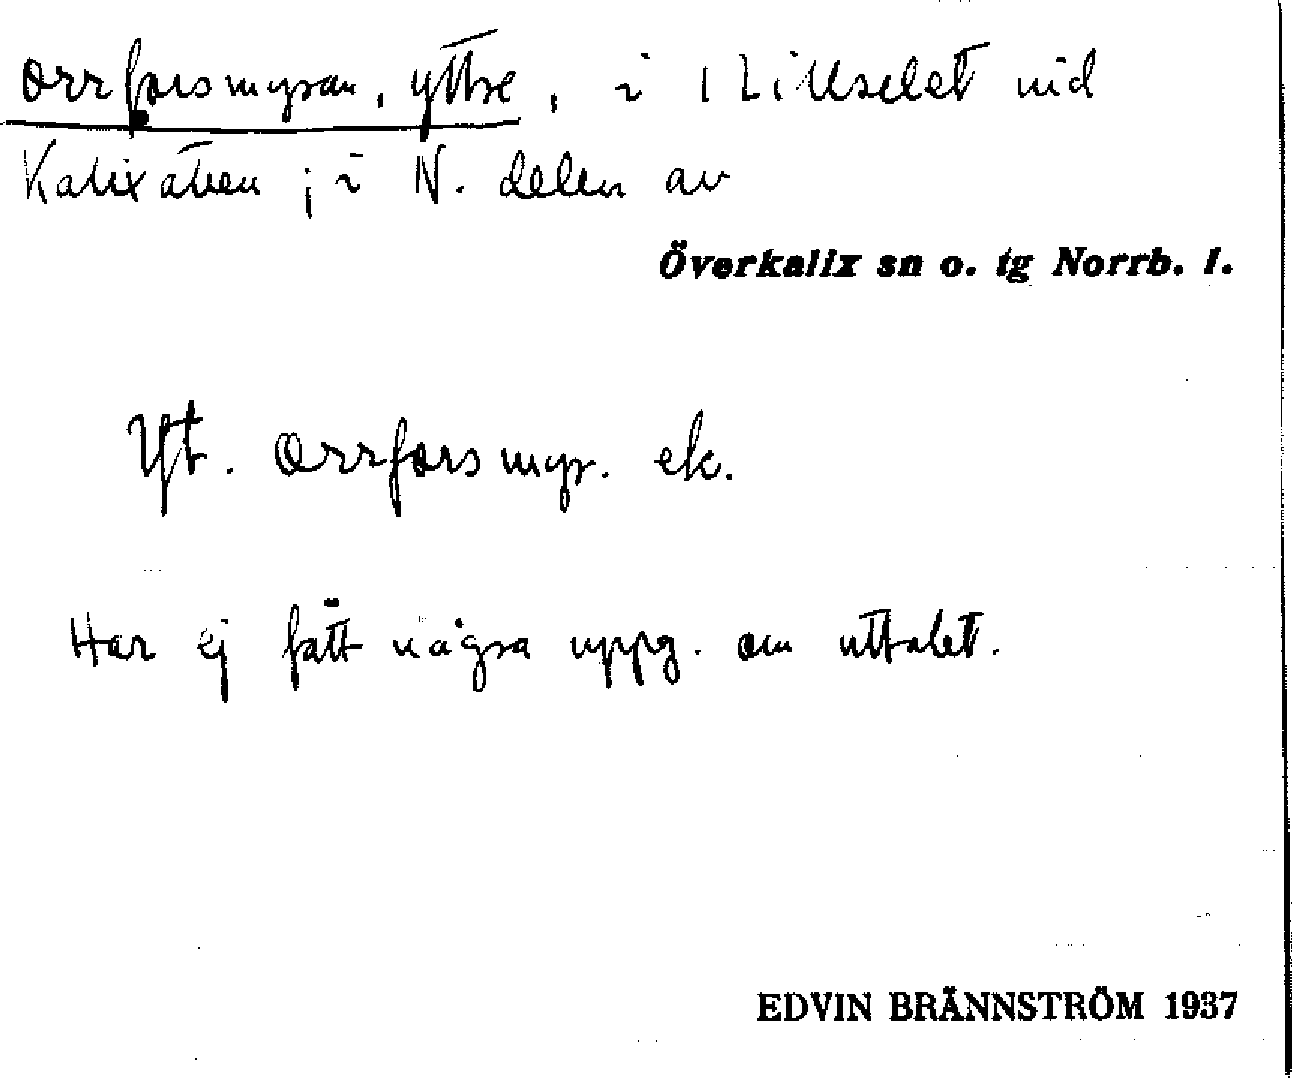 Orrforsmyran, yttre, i Lillselet vid
Kalixälven ; i N. delen av
Överkalix sn o. tg Norrb. l.
Yt. Orrforsmyr. ek.
Har ej fått några uppg. om uttalet.
EDVIN BRÄNNSTRÖM 1937